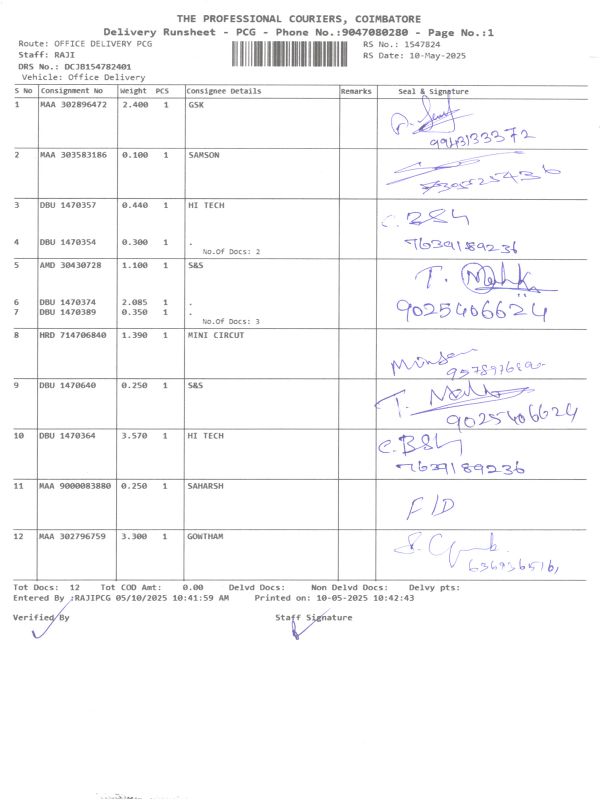 THE PROFESSIONAL COURIERS, COIMBATORE
Delivery Runsheet - PCG - Phone No.:9047080280 - Page No.:1
Route: OFFICE DELIVERY PCG RS No.: 1547824
Staff: RAJI RS Date: 10-May-2025
DRS No.: DCJB154782401
Vehicle: Office Delivery
S No Consignment No Weight PCS Consignee Details Remarks Seal & Signature
1 MAA 302896472 2.400 1 GSK
9943133372
2 MAA 303583186 0.100 1 SAMSON
3 DBU 1470357 0.440 1 HI TECH C. BSH
4 DBU 1470354 0.300 1 . 7639189236
No.Of Docs: 2
5 AMD 30430728 1.100 1 S&S T.
6 DBU 1470374 2.085 1 .
7 DBU 1470389 0.350 1 . 9025406624
No.Of Docs: 3
8 HRD 714706840 1.390 1 MINI CIRCUT
9 DBU 1470640 0.250 1 S&S T.
9025406624
10 DBU 1470364 3.570 1 HI TECH C.BSH
7639189236
11 MAA 9000083880 0.250 1 SAHARSH
F/D
12 MAA 302796759 3.300 1 GOWTHAM
Tot Docs: 12 Tot COD Amt: 0.00 Delvd Docs: Non Delvd Docs: Delvy pts:
Entered By :RAJIPCG 05/10/2025 10:41:59 AM Printed on: 10-05-2025 10:42:43
Verified By Staff Signature